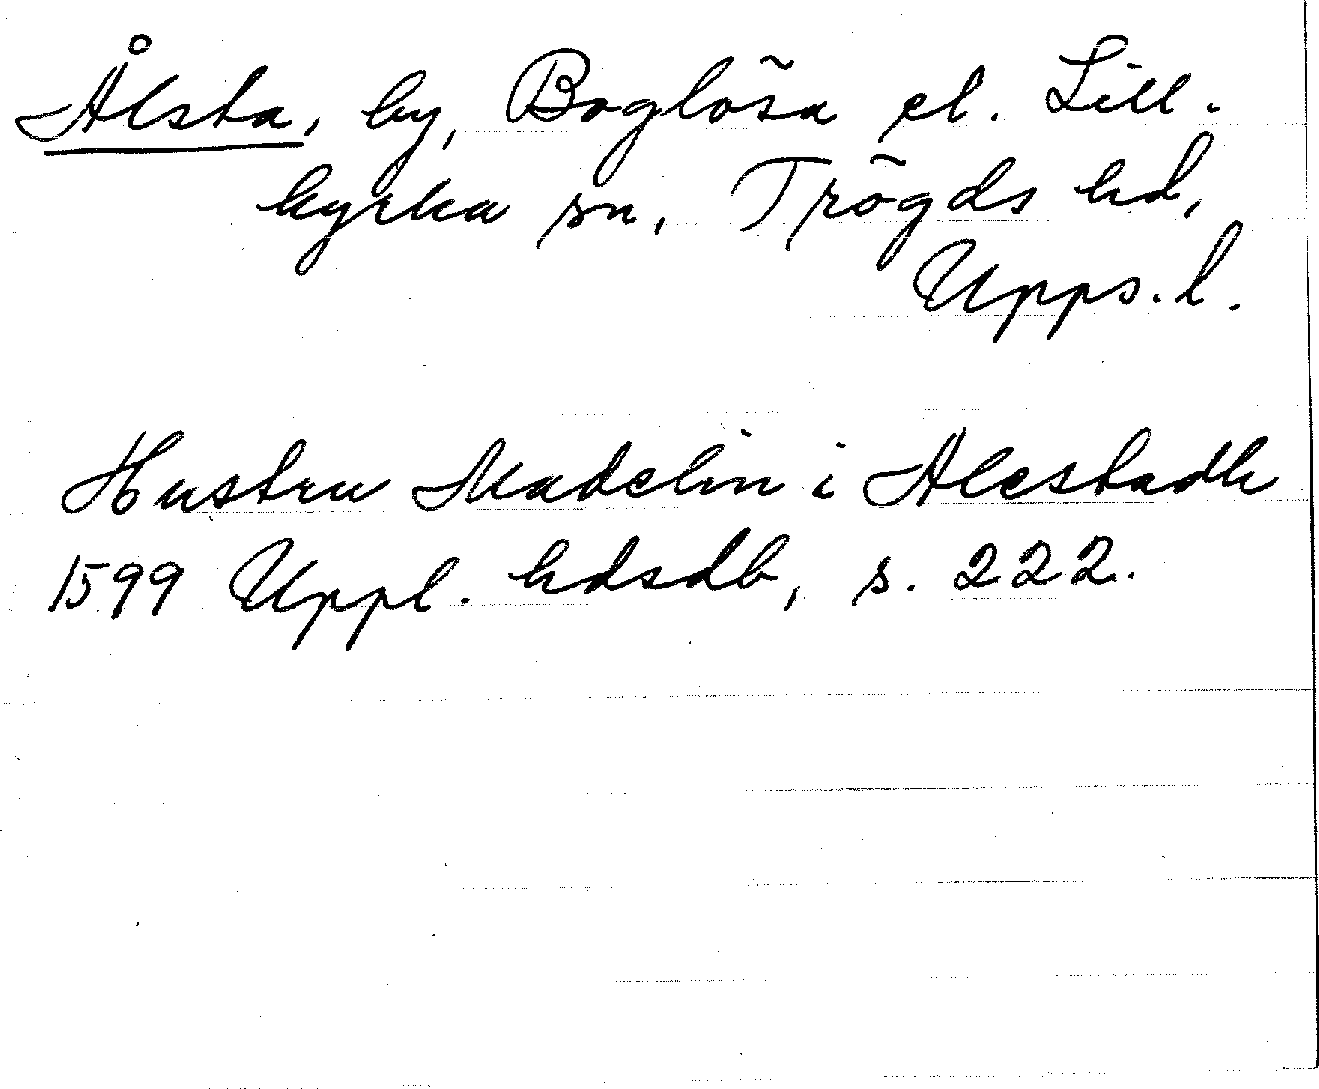 Ålsta, by, Boglösa el. Lill-
kyrka sn, Trögds hd,
Upps. l.
Hustru Madelin i Alestadh
1599 Uppl. hdsdb, s. 222.